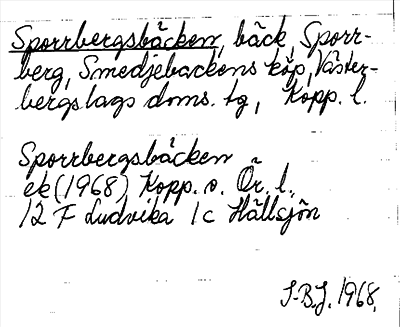 Sporrbergsbäcken, bäck, Sporr-
berg, Smedjebackens köp, Väster-
bergslags doms. tg, Kopp. l.
Sporrbergsbäcken
ek (1968) Kopp. o. Ör. l.
12 F Ludvika 1c Hällsjön
S-B.J. 1968.